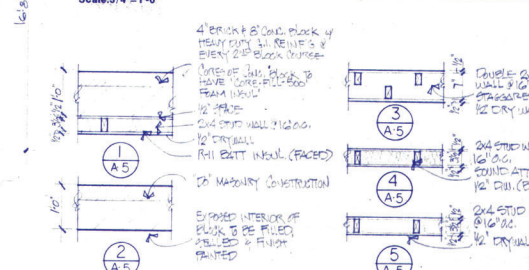 Scale:3/4"=1'-0"
16'8
4" BRICK & 8" CONC. BLOCK W/
HEAVY DUTY REINF'G @
EVERY 2ND BLOCK COURSE
CORES OF CONC. BLOCK TO
HAVE "CORE-FILL 500"
FOAM INSUL'
1/2" SPACE
2x4 STUD WALL @ 16" O.C.
1/2" DRYWALL
R-11 BATT INSUL. (FACED)
1
A·5
1'-0"
DO MASONRY CONSTRUCTION
EXPOSED INTERIOR OF
BLOCK TO BE FILLED,
SEALED & FINISH
PAINTED
2
A·5
DOUBLE 2
WALL @ 16"
STAGGERE
1/2" DRY WA
3
A·5
2x4 STUD W
16" O.C.
SOUND ATT
1/2" D.W. (B
4
A·5
2x4 STUD
@ 16" O.C.
1/2" DRYWAL
5
A·5